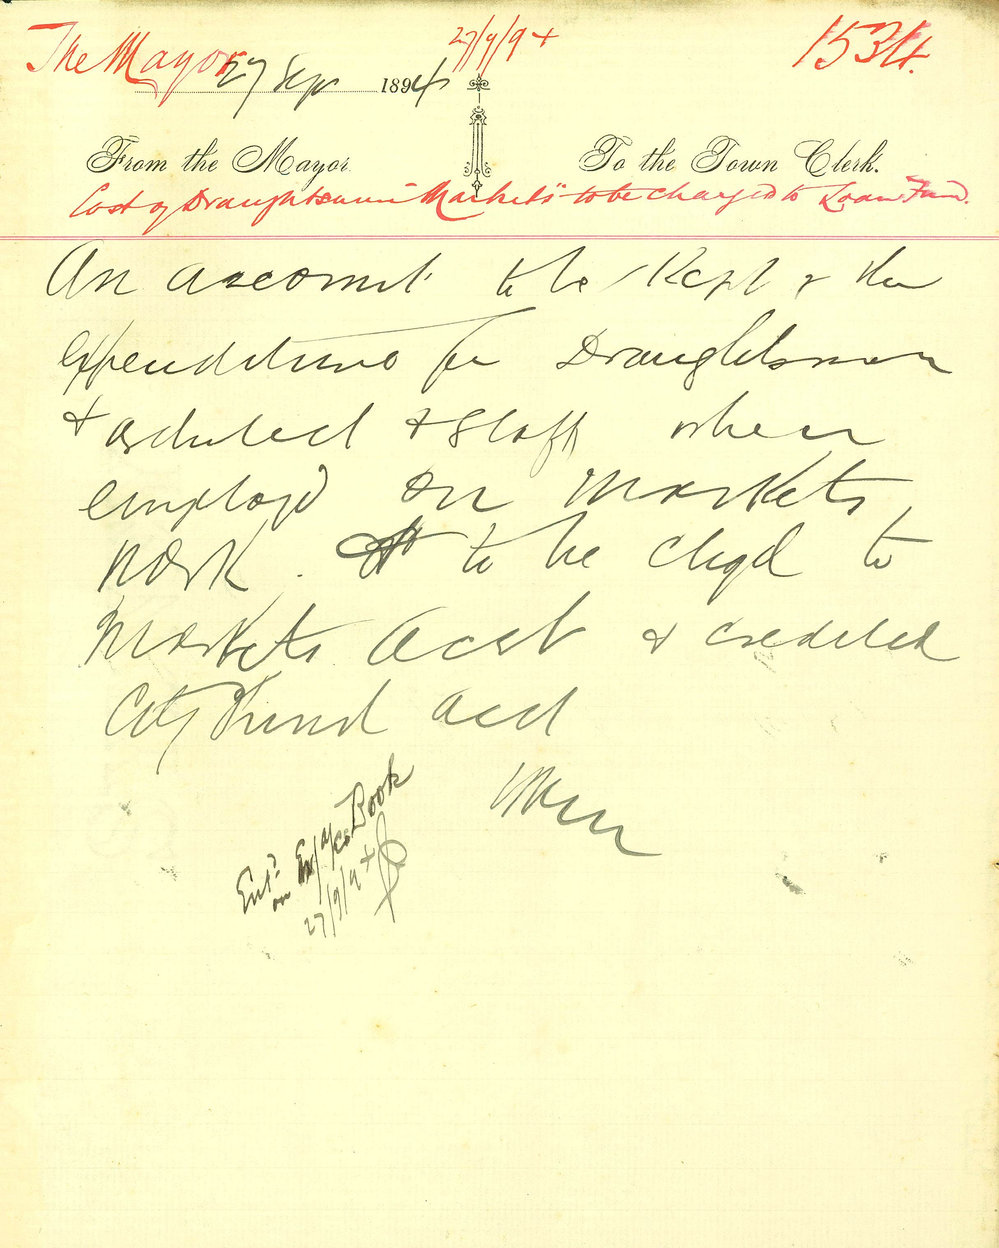 The Mayor 27/9/94 1534.
27 Sep 1894
From the Mayor To the Town Clerk.
Cost of Draughtsman "Markets" to be charged to Loan Fund.
An account to be Kept of the
expenditure for Draughtsman
& Architect & Staff when
employd on Markets
Work. to be chgd to
Markets Acct & credited
City Fund Acct
Entd. on Book
27/9/94